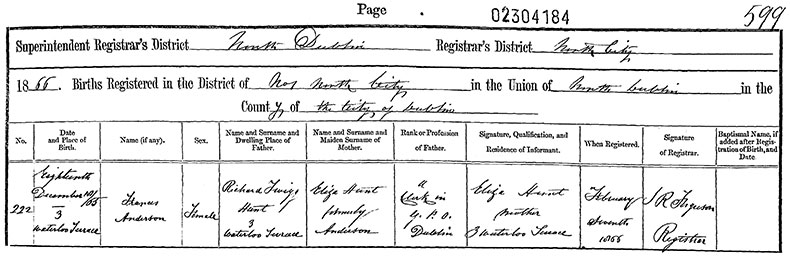 Page 02304184 599
Superintendent Registrar's District North Dublin Registrar's District North City
1866. Births Registered in the District of No 1 North City in the Union of North Dublin in the
County of the City of Dublin
No.
Date
and Place of
Birth.
Name (if any).
Sex.
Name and Surname and
Dwelling Place of
Father.
Name and Surname and
Maiden Surname of
Mother.
Rank or Profession
of Father.
Signature, Qualification, and
Residence of Informant.
When Registered.
Signature
of Registrar.
Baptismal Name, if
added after Regis-
tration of Birth, and
Date
222
Eighteenth
December
3
Waterloo Terrace
Frances
Anderson
Female
Richard
Hunt
3
Waterloo Terrace
Eliza Hunt
formerly
Anderson
a
Clerk in
G. P. O.
Dublin
Eliza Hunt
mother
3 Waterloo Terrace
February
Seventh
1866
J R Ferguson
Registrar